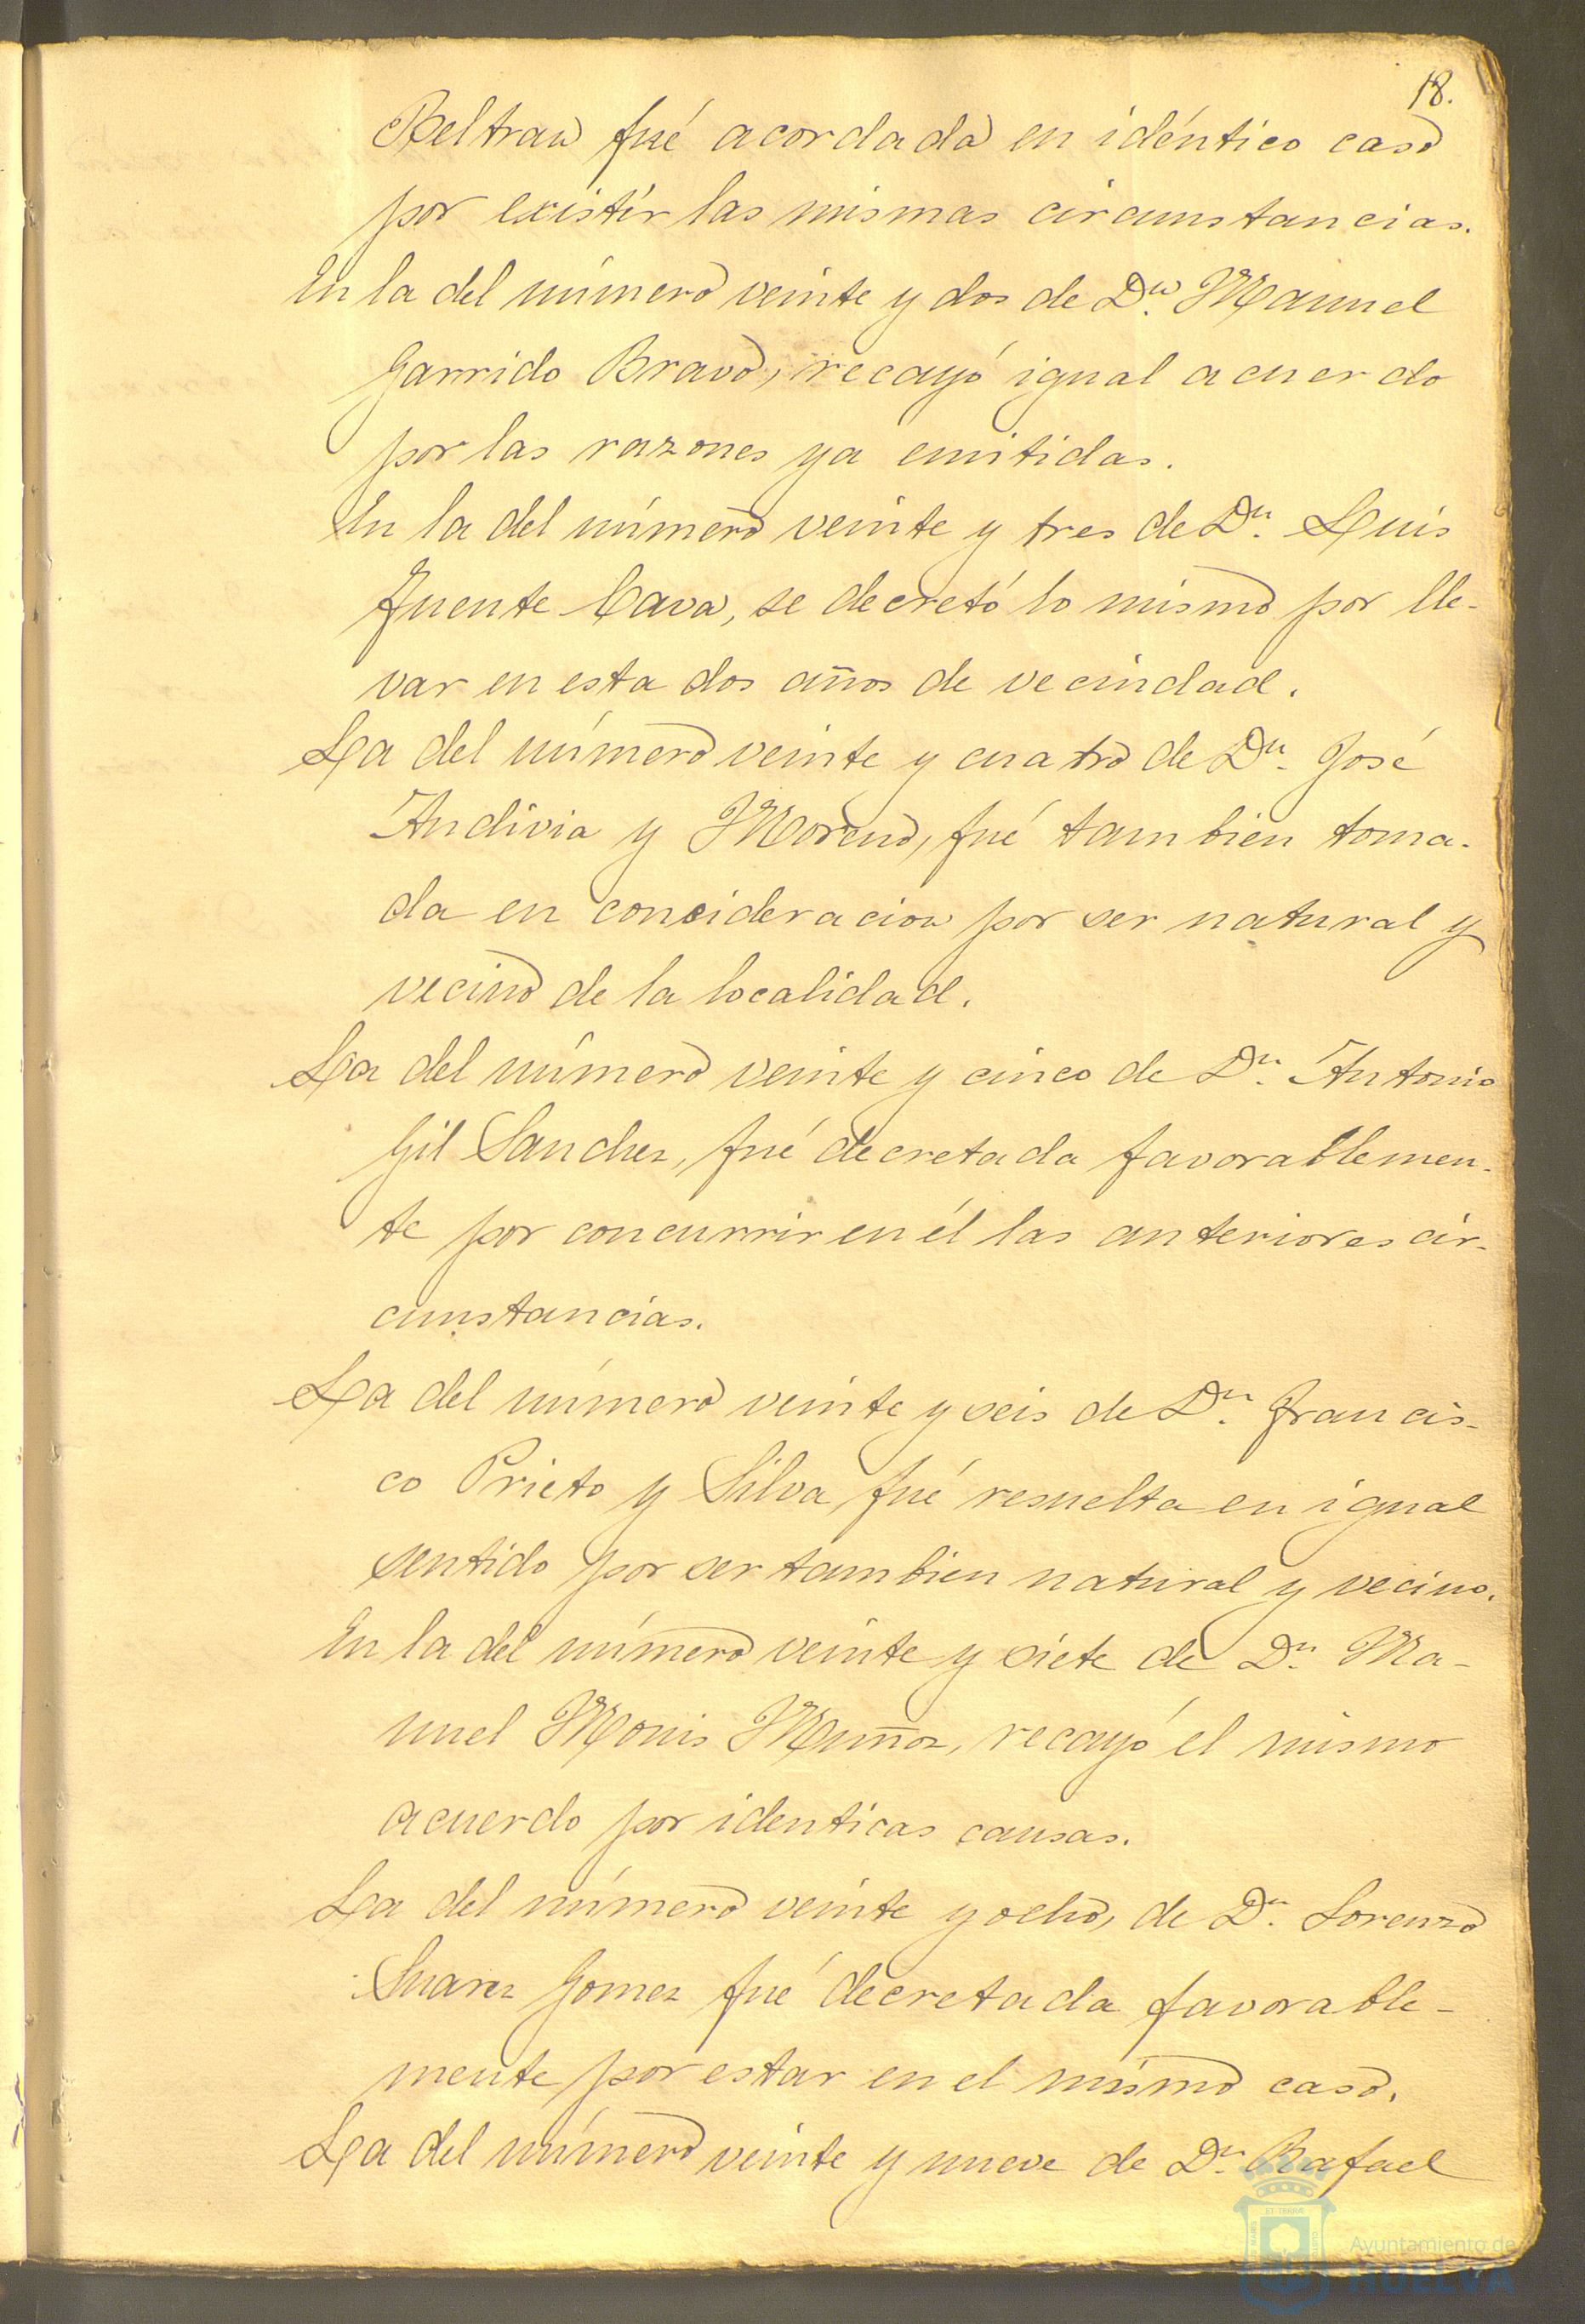 18.
Beltran fué acordada en idéntico caso
por existir las mismas circunstancias.
En la del número veinte y dos de Dn. Manuel
Garrido Bravo, recayó igual acuerdo
por las razones ya emitidas.
En la del número veinte y tres de Dn. Luis
Fuente Cava, se decretó lo mismo por lle-
var en esta dos años de vecindad.
La del número veinte y cuatro de Dn. José
Andivia y Moreno, fué tambien toma-
da en concideracion por ser natural y
vecino de la localidad.
La del número veinte y cinco de Dn. Antonio
Gil Sanchez, fué decretada favorablemen-
te por concurrir en él las anteriores cir-
cunstancias.
La del número veinte y seis de Dn. Francis-
co Prieto y Silva fué resuelta en igual
sentido por ser tambien natural y vecino.
En la del número veinte y siete de Dn. Ma-
nuel Monis Muñoz, recayó el mismo
acuerdo por identicas causas.
La del número veinte y ocho, de Dn. Lorenzo
Suarez Gomez fué decretada favorable-
mente por estar en el mismo caso.
La del número veinte y nueve de Dn. Rafael
Ayuntamiento de
HUELVA